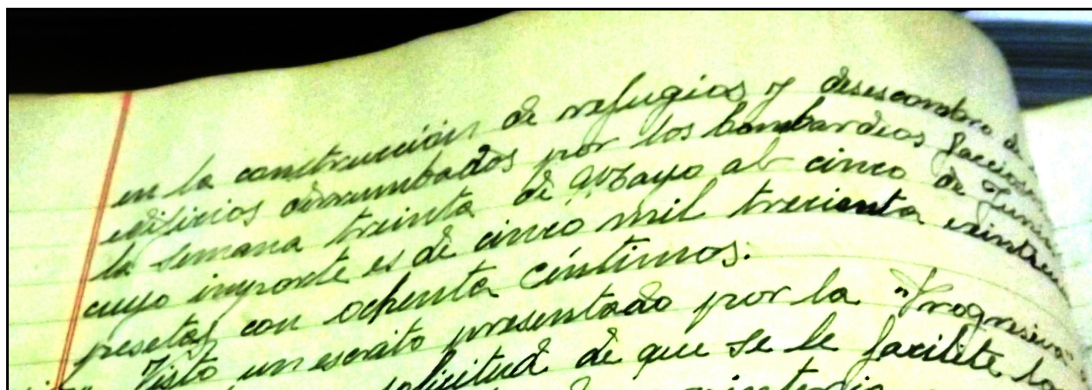 en la construcción de refugios y desescombro de
edificios derrumbados por los bombardeos facciosos
la semana treinta de Mayo al cinco de Junio
cuyo importe es de cinco mil trecienta
pesetas con ochenta céntimos.
Visto un escrito presentado por la "Progresiva"
solicitud de que se le facilite la